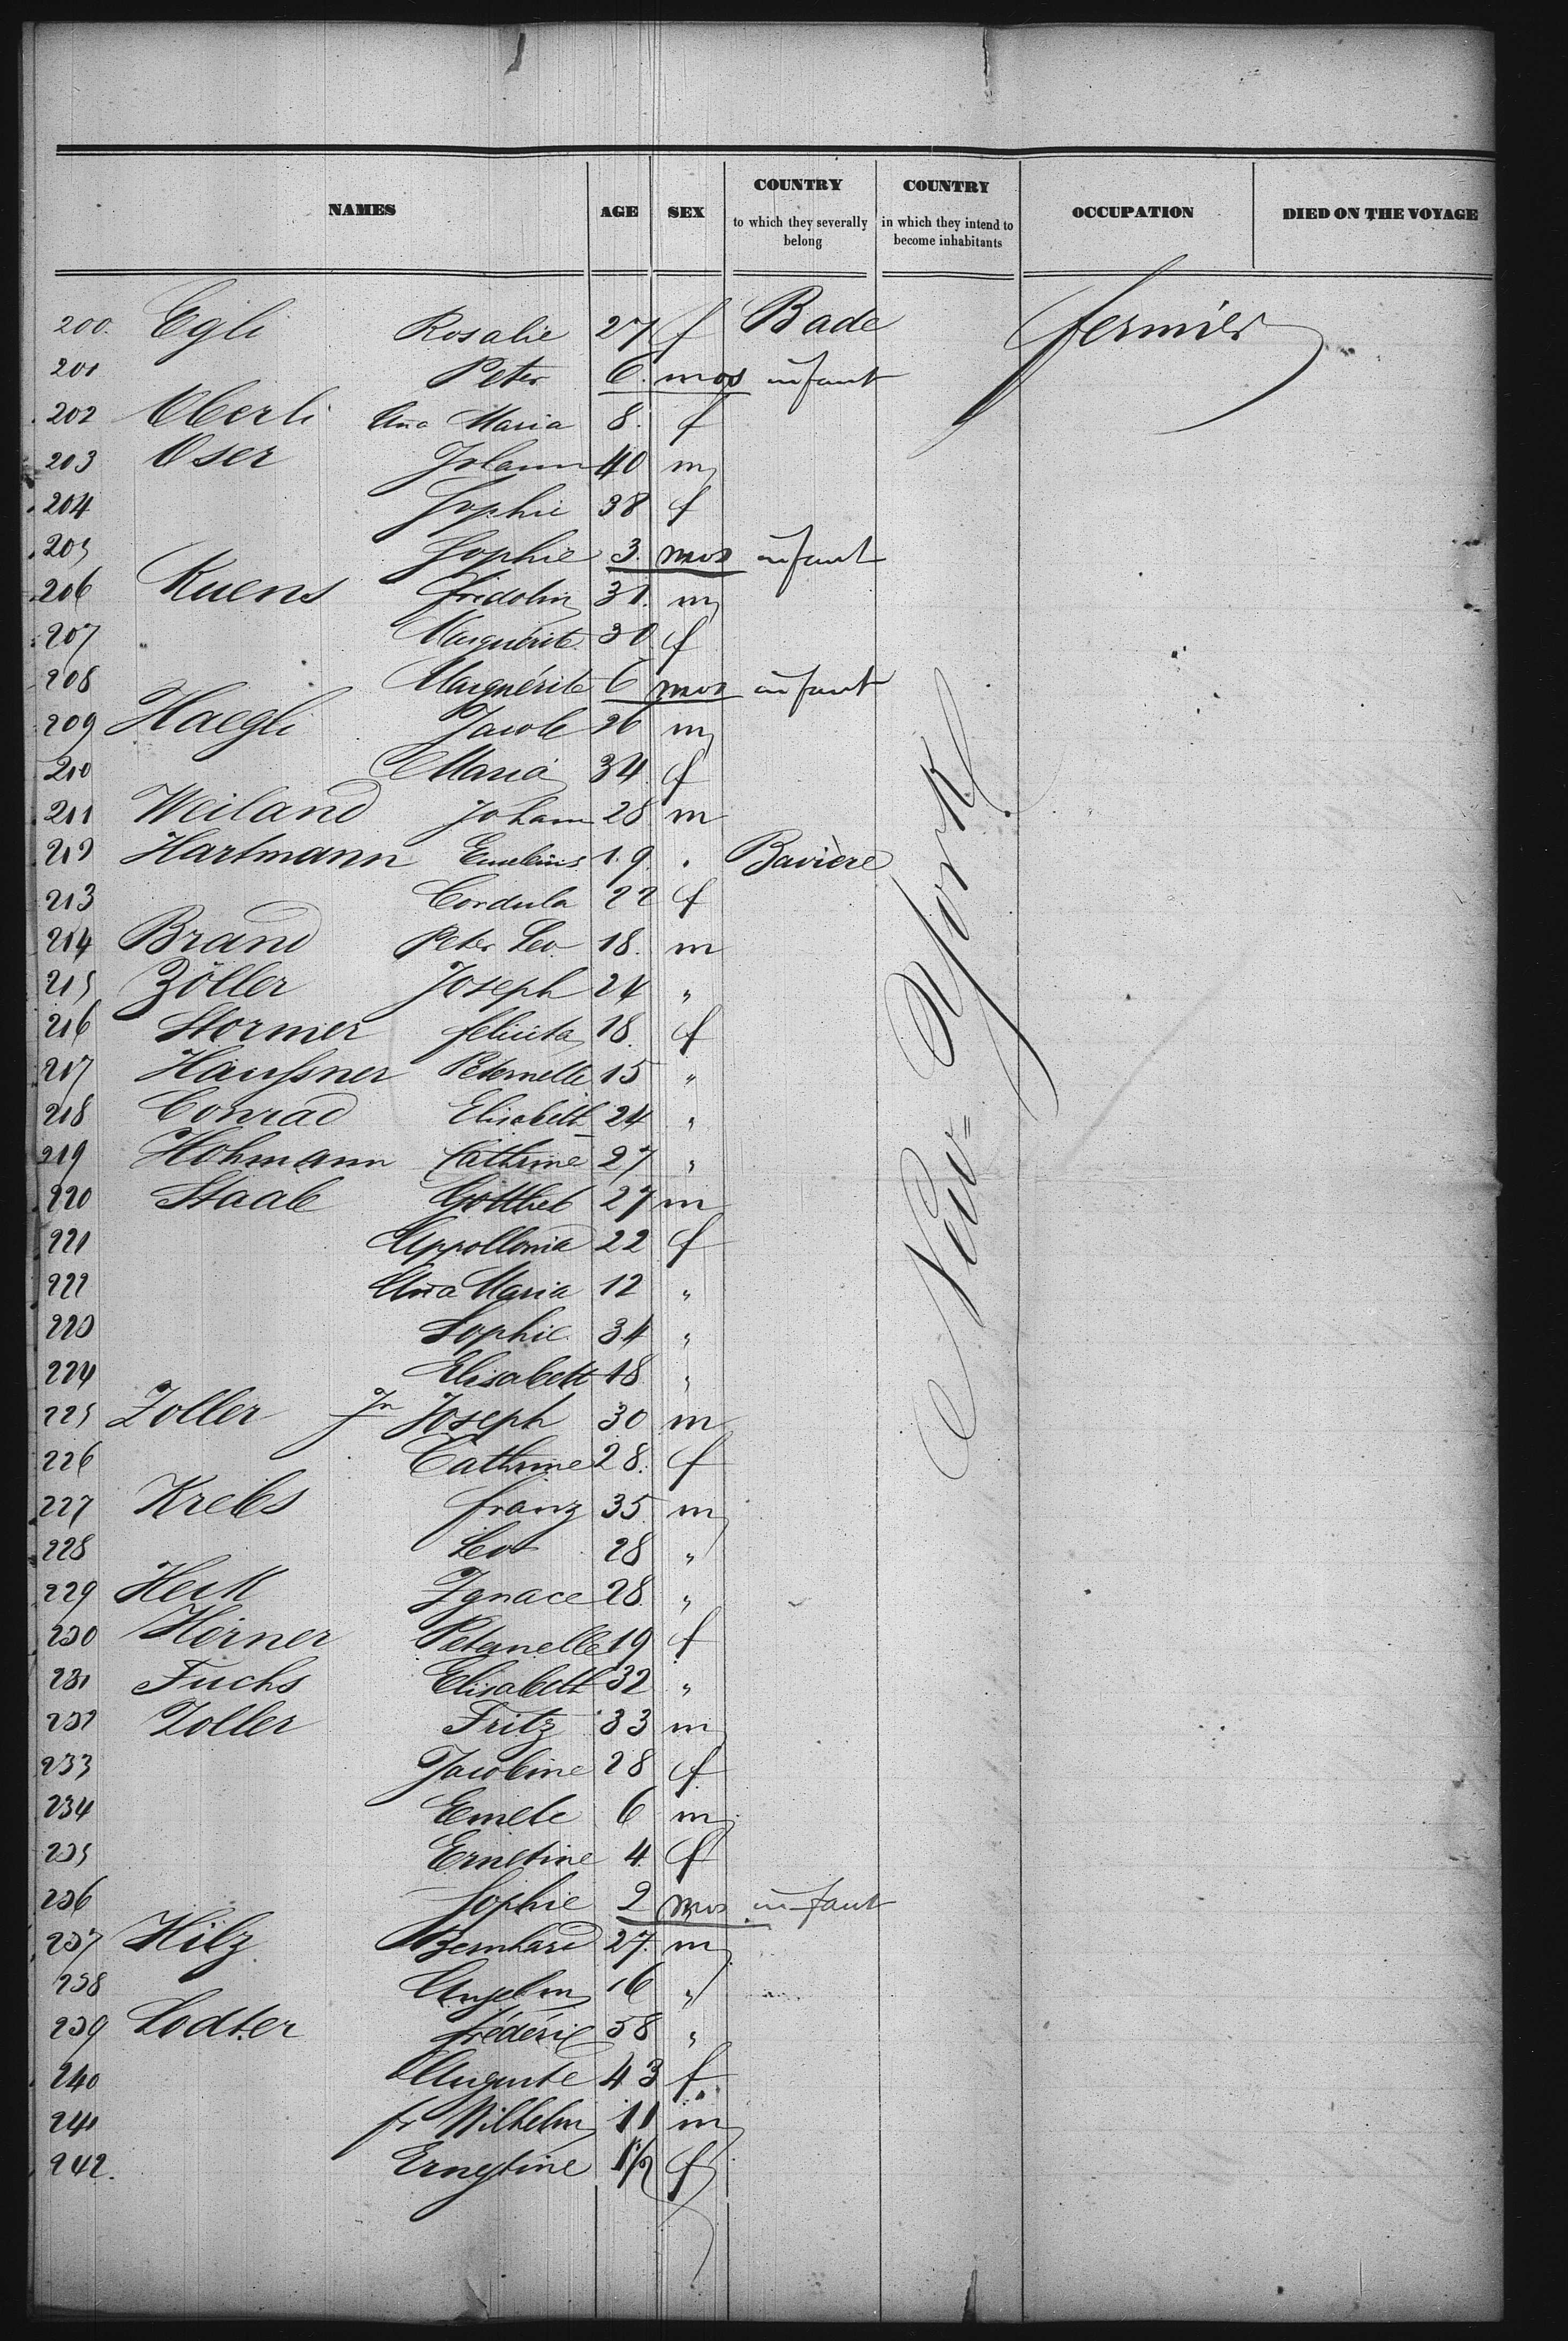 NAMES AGE SEX COUNTRY to which they severally belong COUNTRY in which they intend to become inhabitants OCCUPATION DIED ON THE VOYAGE
200. Egli Rosalie 27 f Bade fermier
201 Peter 6. mos infant
202 Eberli Ana Maria 8. f
203 Oser Johann 40 m
204 Sophie 38 f
205 Sophie 3. mos infant
206 Kuens Fridolin 31. m
207 " Marguérite 30 f
208 Marguérite 6 mos infant
209 Haegli Jacob 26 m
210 Maria 34 f
211 Weiland Johann 28 m
212 Hartmann 19. " Bavière
213 Cordula 22 f
214 Brand Peter Leo 18. m
215 Zöller Joseph 24 "
216 Stormer felicita 18. f
217 Haußner Peternelle 15 "
218 Conrad Elisabeth 24 "
219 Hohmann Cathrine 27 "
220 Staab Gottlieb 27 m
221 Appollonia 22 f
222 Ana Maria 12 "
223 Sophie 34 "
224 Elisabett 18 "
225 Zoller Jn Joseph 30 m
226 Cathrine 28. f
227 Krebs franz 35. m
228 Leo 28 "
229 Heck Ignace 28. "
230 Hörner Peternelle 19 f
231 Fuchs Elisabeth 32 "
232 Zoller Fritz 33 m
233 Jacobine 28 f
234 Emele 6 m
235 Ernetine 4. f
236 Sophie 2 mos infant
237 Hilz Bernhard 27. m
238 Anselm 16 "
239 Lodter frédéric 58 "
240 Auguste 43 f
241 fr Wilhelm 11 m
242. Ernestine 1½ f
New-York